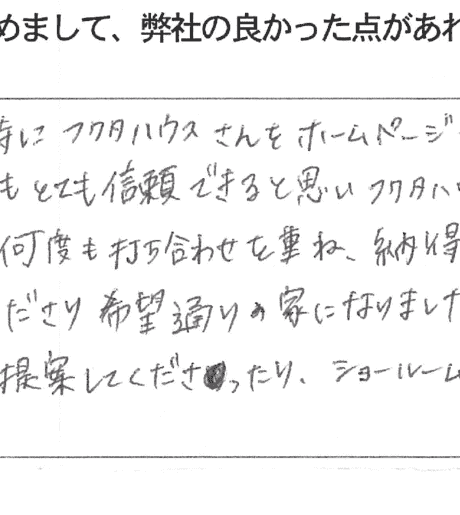 めまして、弊社の良かった点があれ
時に フクタハウス さんを ホームページ
もとても信頼できると思い フクタハ
何度も打ち合わせを重ね、納得
ださり 希望通りの家になりました
提案してくださったり、ショールーム